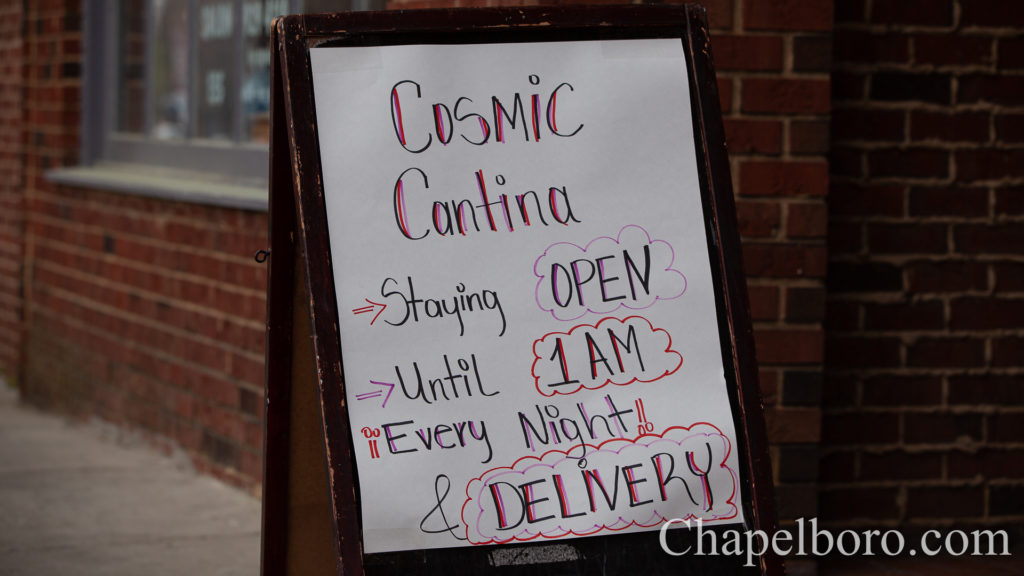 Cosmic
Cantina
⇒ Staying OPEN
⇒ Until 1 AM
¡¡Every Night!!
& DELiVERY
Chapelboro.com